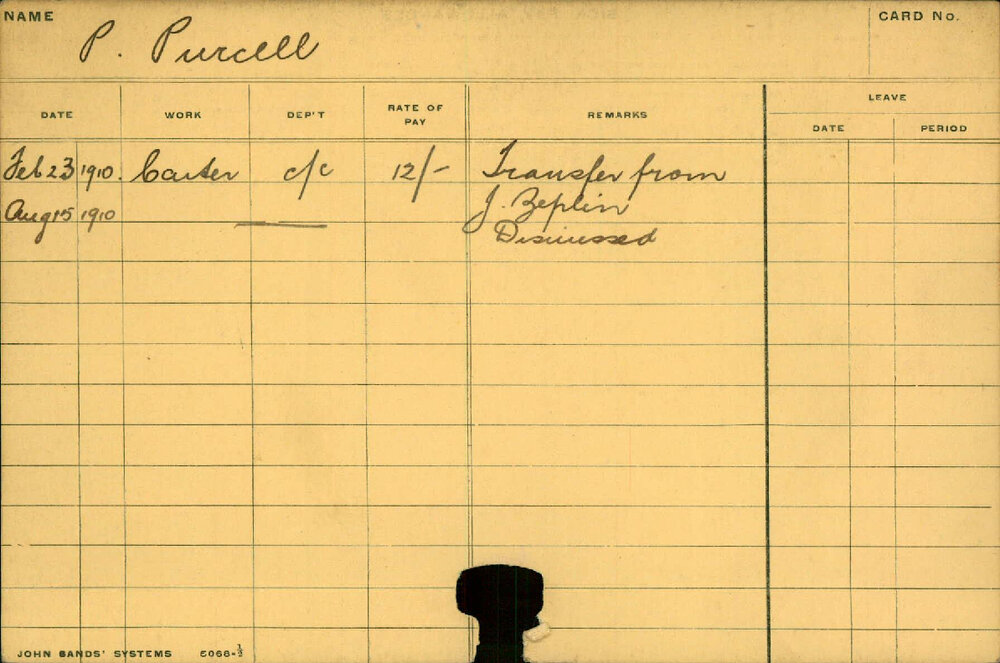 NAME
P. Purcell
CARD No.
DATE
WORK
DEP'T
RATE OF PAY
REMARKS
LEAVE
DATE
PERIOD
Feb 23 1910. Carter c/c 12/- Transfer from
J. Zeplin
Aug 15 1910 Dismissed
JOHN SANDS' SYSTEMS 5068-½